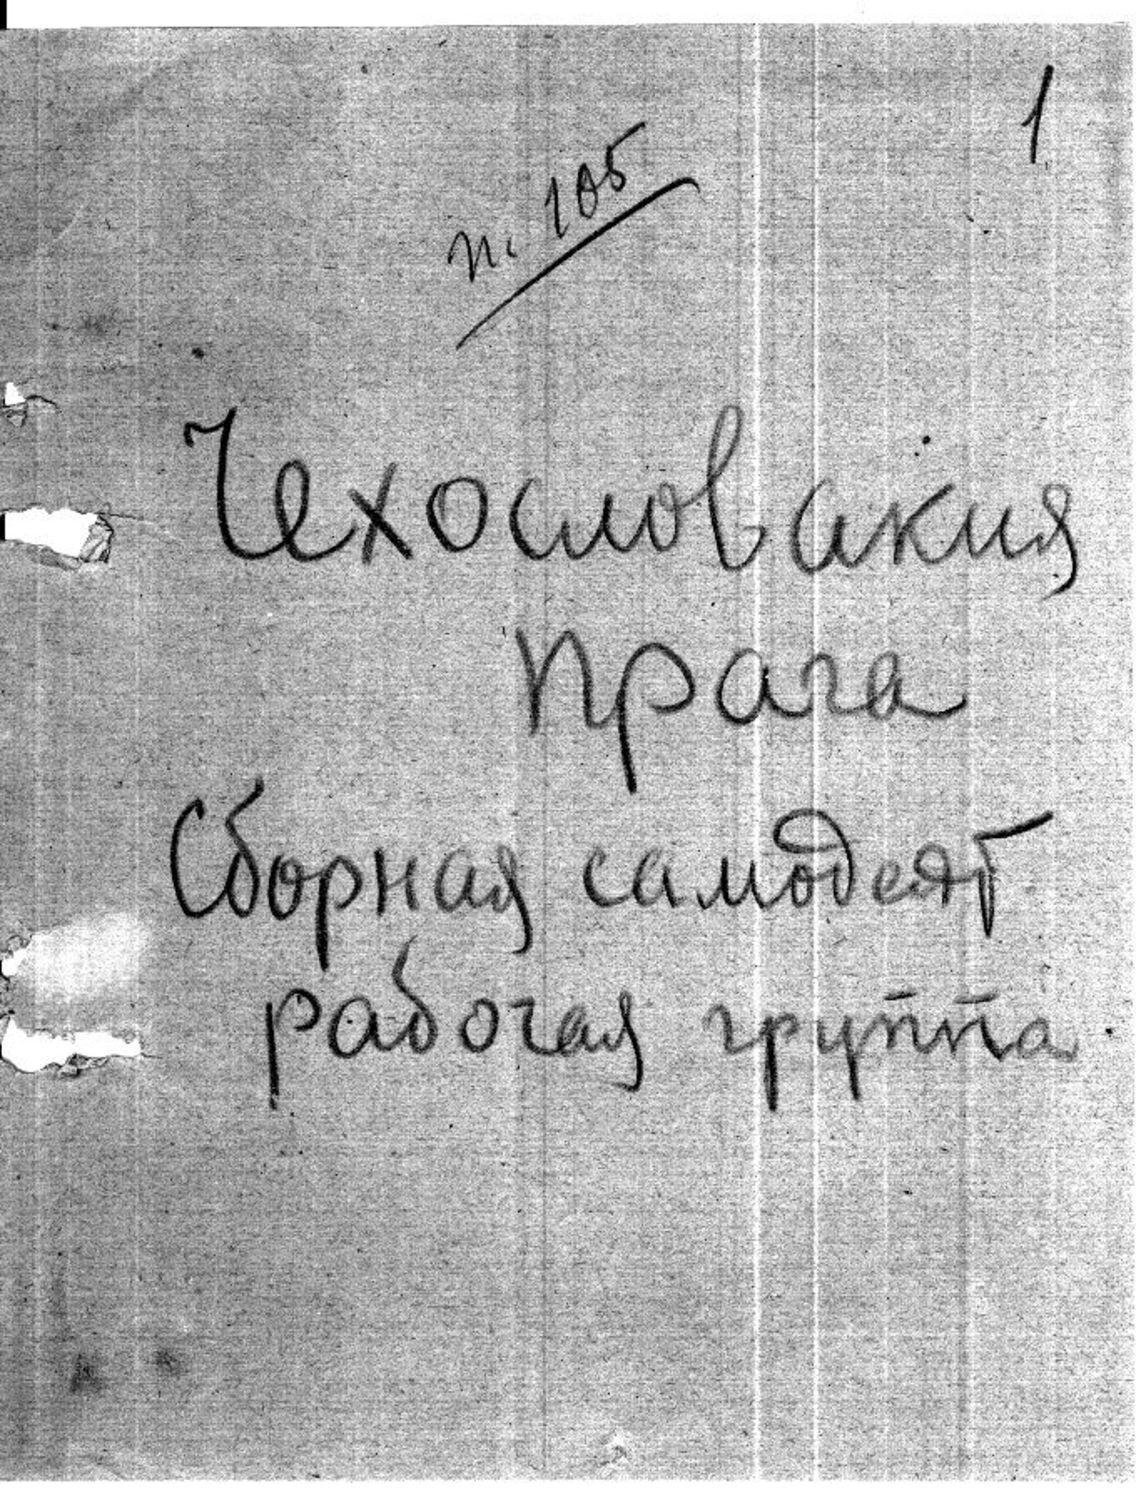 1
п. 105
Чехословакия
Прага
Сборная самодеят
рабочая группа